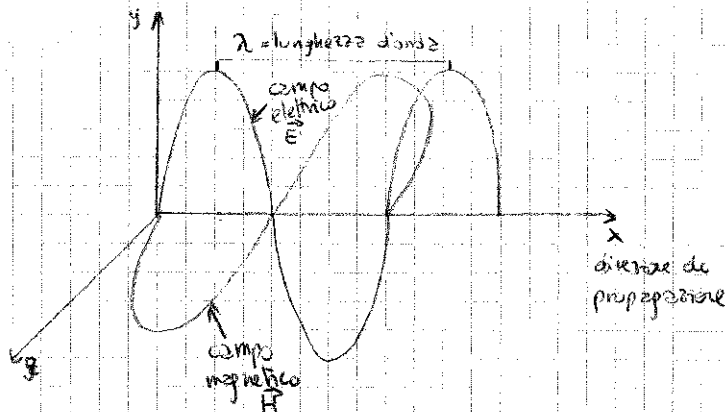 y
λ = lunghezza d'onda
campo
elettrico
E
x
direzione di
propagazione
campo
magnetico
H
z